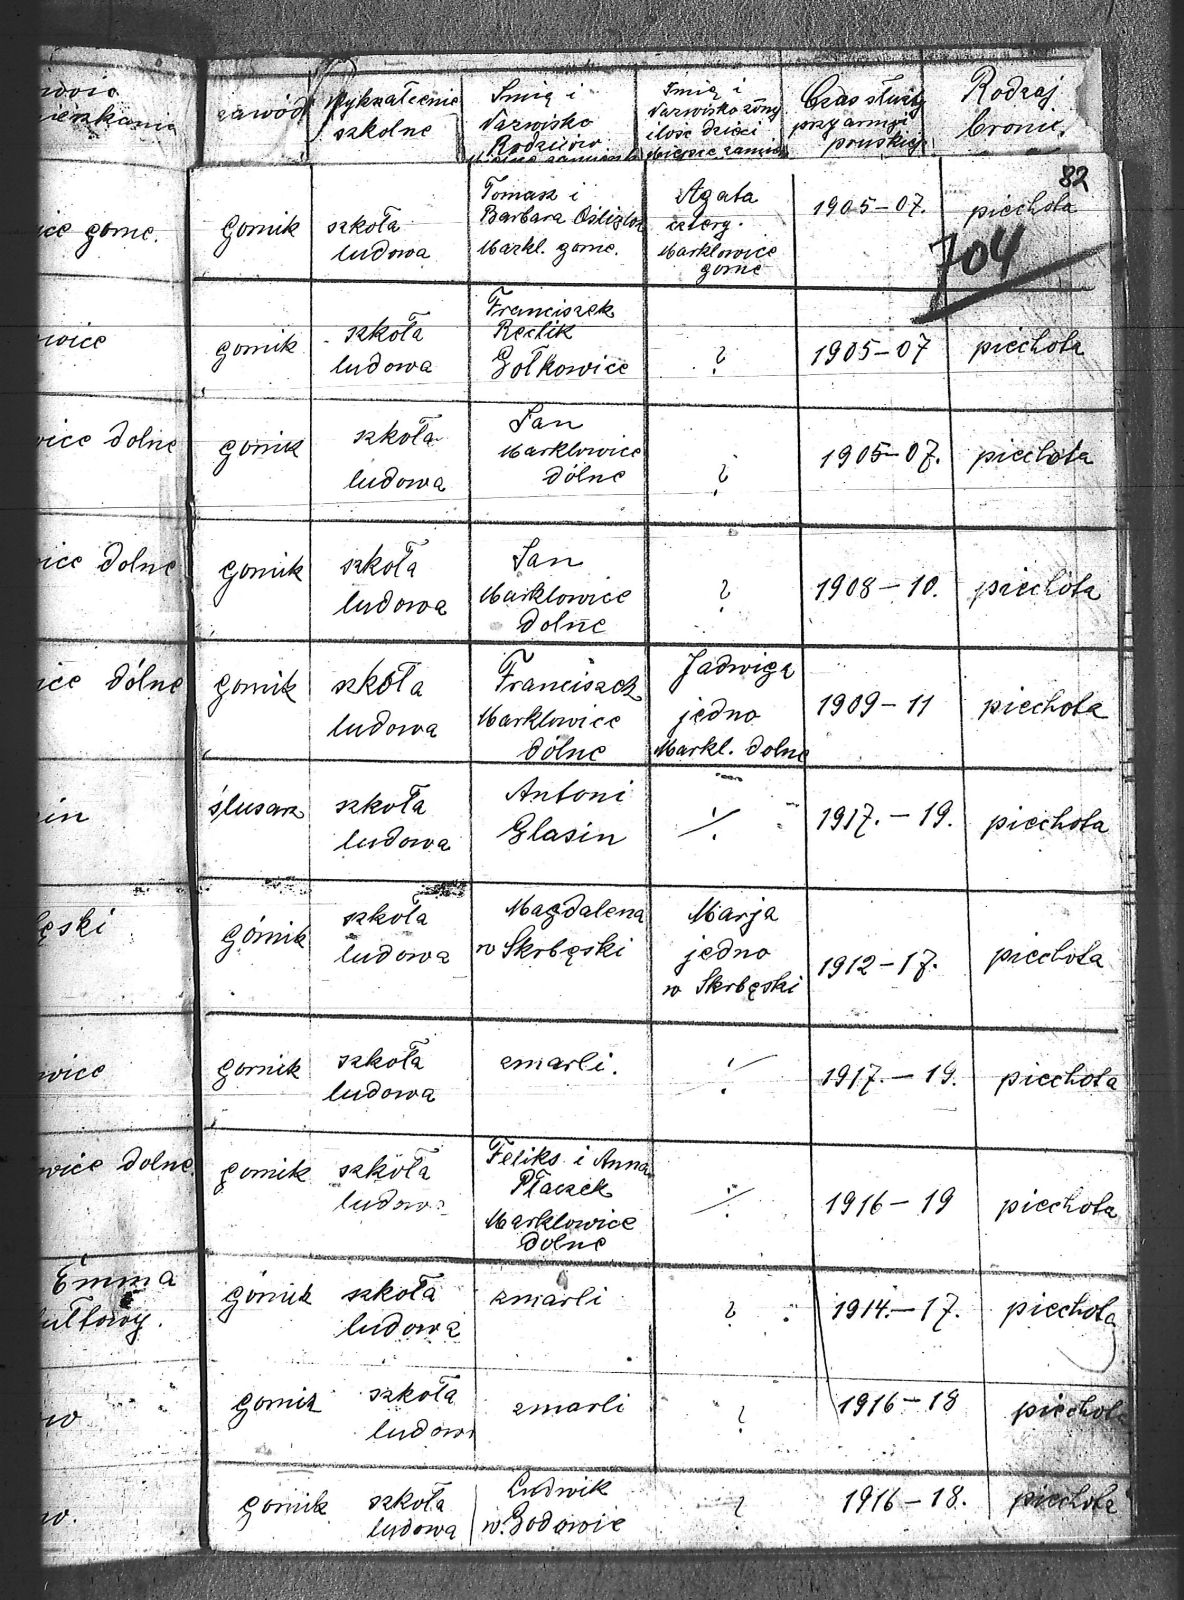 zawód
Wykształcenie
szkolne
Imię i
Nazwisko
Rodziców
Imię i
Nazwisko żony
ilość dzieci
Miejsce zamiesz
Czas służby
przy armji
pruskiej
Rodzaj
broni.
82
704
górne.
Gornik
szkoła
ludowa
Tomasz i
Barbara
Markl. gorne.
Agata
czterg.
Marklowice
gorne
1905-07.
piechota
wice
gornik
szkoła
ludowa
Franciszek
Reclik
Gołkowice
?
1905-07
piechota
wice dolne
gornik
szkoła
ludowa
Jan
Marklowice
dólne
?
1905-07.
piechota
wice dolne
gornik
szkoła
ludowa
Jan
Marklowice
dolne
?
1908-10.
piechota
ice dólne
gornik
szkoła
ludowa
Franciszek
Marklowice
dólne
Jadwiga
jedno
Markl. dolne
1909-11
piechota
in
ślusarz
szkoła
ludowa
Antoni
Glasin
./.
1917.-19.
piechota
ęski
górnik
szkoła
ludowa
Magdalena
w Skrbęski
Marja
jedno
w Skrbęski
1912-17.
piechota
wice
gornik
szkoła
ludowa
zmarli.
./.
1917.-19.
piechota
wice dolne
gornik
szkoła
ludowa
Feliks i Anna
Płaczek
Marklowice
dolne
./.
1916-19
piechota
Emma
ułtowy.
górnik
szkoła
ludowa
zmarli
?
1914.-17.
piechota
w
gornik
szkoła
ludowa
zmarli
?
1916-18
piechota
w.
gornik
szkoła
ludowa
Ludwik
w. Godowie
?
1916-18.
piechota